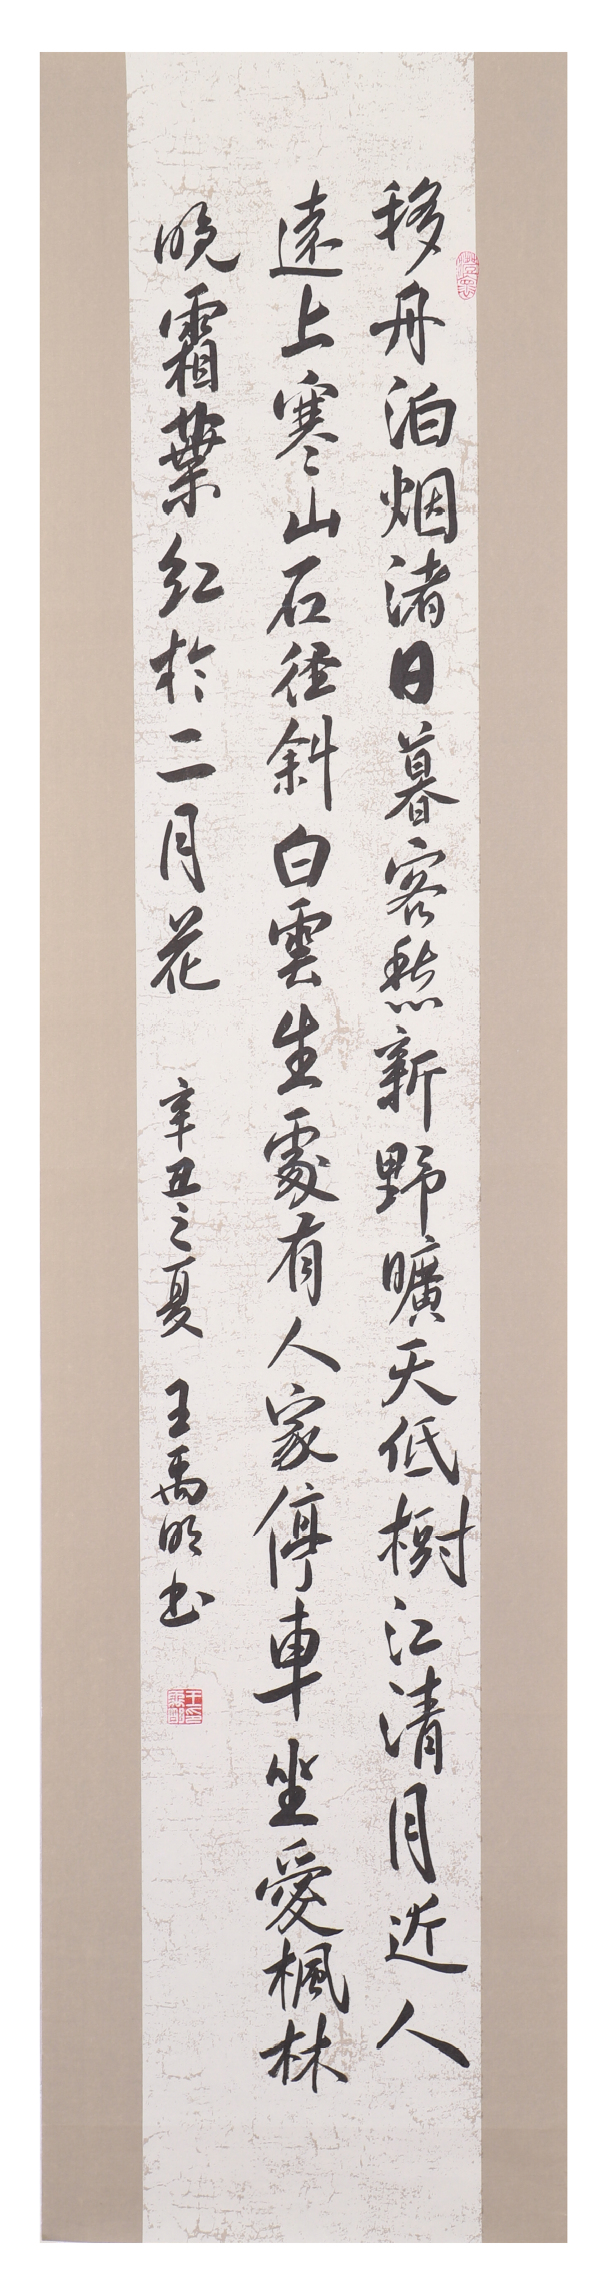 移舟泊烟渚日暮客愁新野曠天低樹江清月近人
遠上寒山石徑斜白雲生處有人家停車坐愛楓林
晚霜葉紅於二月花
辛丑之夏 王禹明书